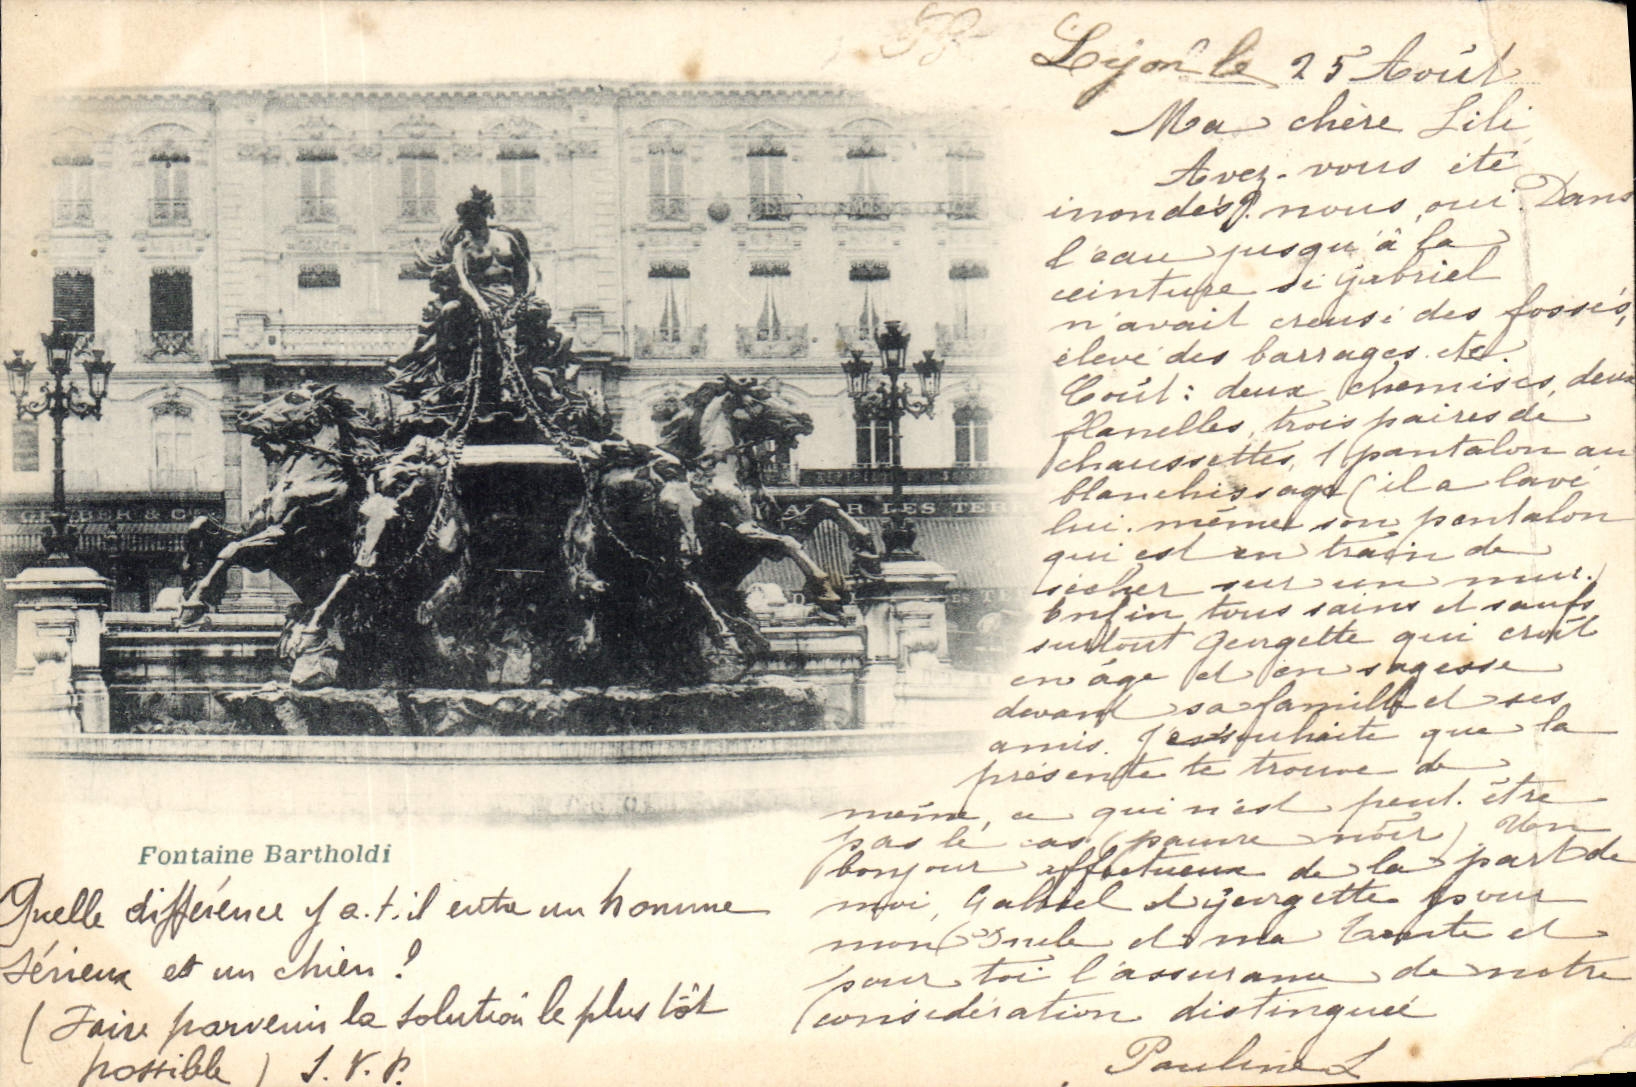 Lyon le 25 Août
Ma chère Lili
Avez-vous été
inondés? nous, oui. Dans
l'eau jusqu'à la
ceinture si Gabriel
n'avait creusé des fossés,
élevé des barrages. etc.
Coût: deux chemises, deux
flanelles, trois paires de
chaussettes, 1 pantalon au
blanchissage (il a lavé
lui-même son pantalon
qui est en train de
sécher sur un mur.)
Enfin tous sains et saufs
surtout Georgette qui croît
en âge et en sagesse
devant sa famille et ses
amis. Je souhaite que la
présente te trouve de
même, ce qui n'est peut-être
pas le cas (pauvre noir) Un
bonjour affectueux de la part de
moi, Gabriel et Georgette pour
mon Oncle et ma Tante et
pour toi l'assurance de notre
considération distinguée
Pauline L
GRUBER & Cie
LES TERR
Fontaine Bartholdi
Quelle différence y a.t.il entre un homme
sérieux et un chien?
(Faire parvenir la solution le plus tôt
possible) S.V.P.